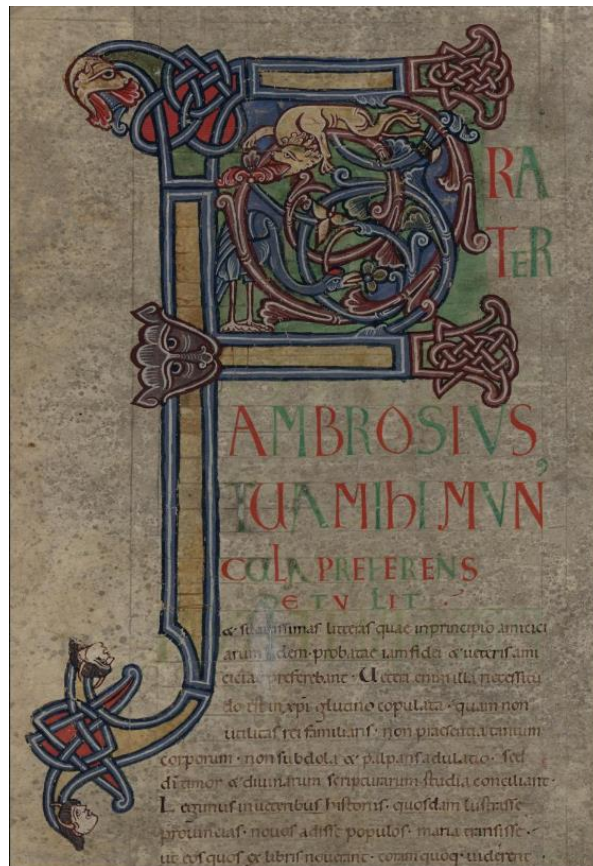 FRA
TER
AMBROSIVS,
TUA MIhI MVN
CULA PREFERENS
DETVLIT.
& suavissimas litteras quae in principio amicici
arum fidem probatae iam fidei & veteris ami
ciciae preferebant. Uera enim illa necessitu
do est in xpi glutino copulata. quam non
utilitas rei familiaris. non praesentia tantum
corporum. non subdola & palpans adulatio. sed
di timor & divinarum scripturarum studia conciliant.
Legimus in veteribus historiis. quosdam lustrasse
provincias. novos adisse populos. maria transisse.
ut eos quos ex libris noverant. coram quoq; viderent